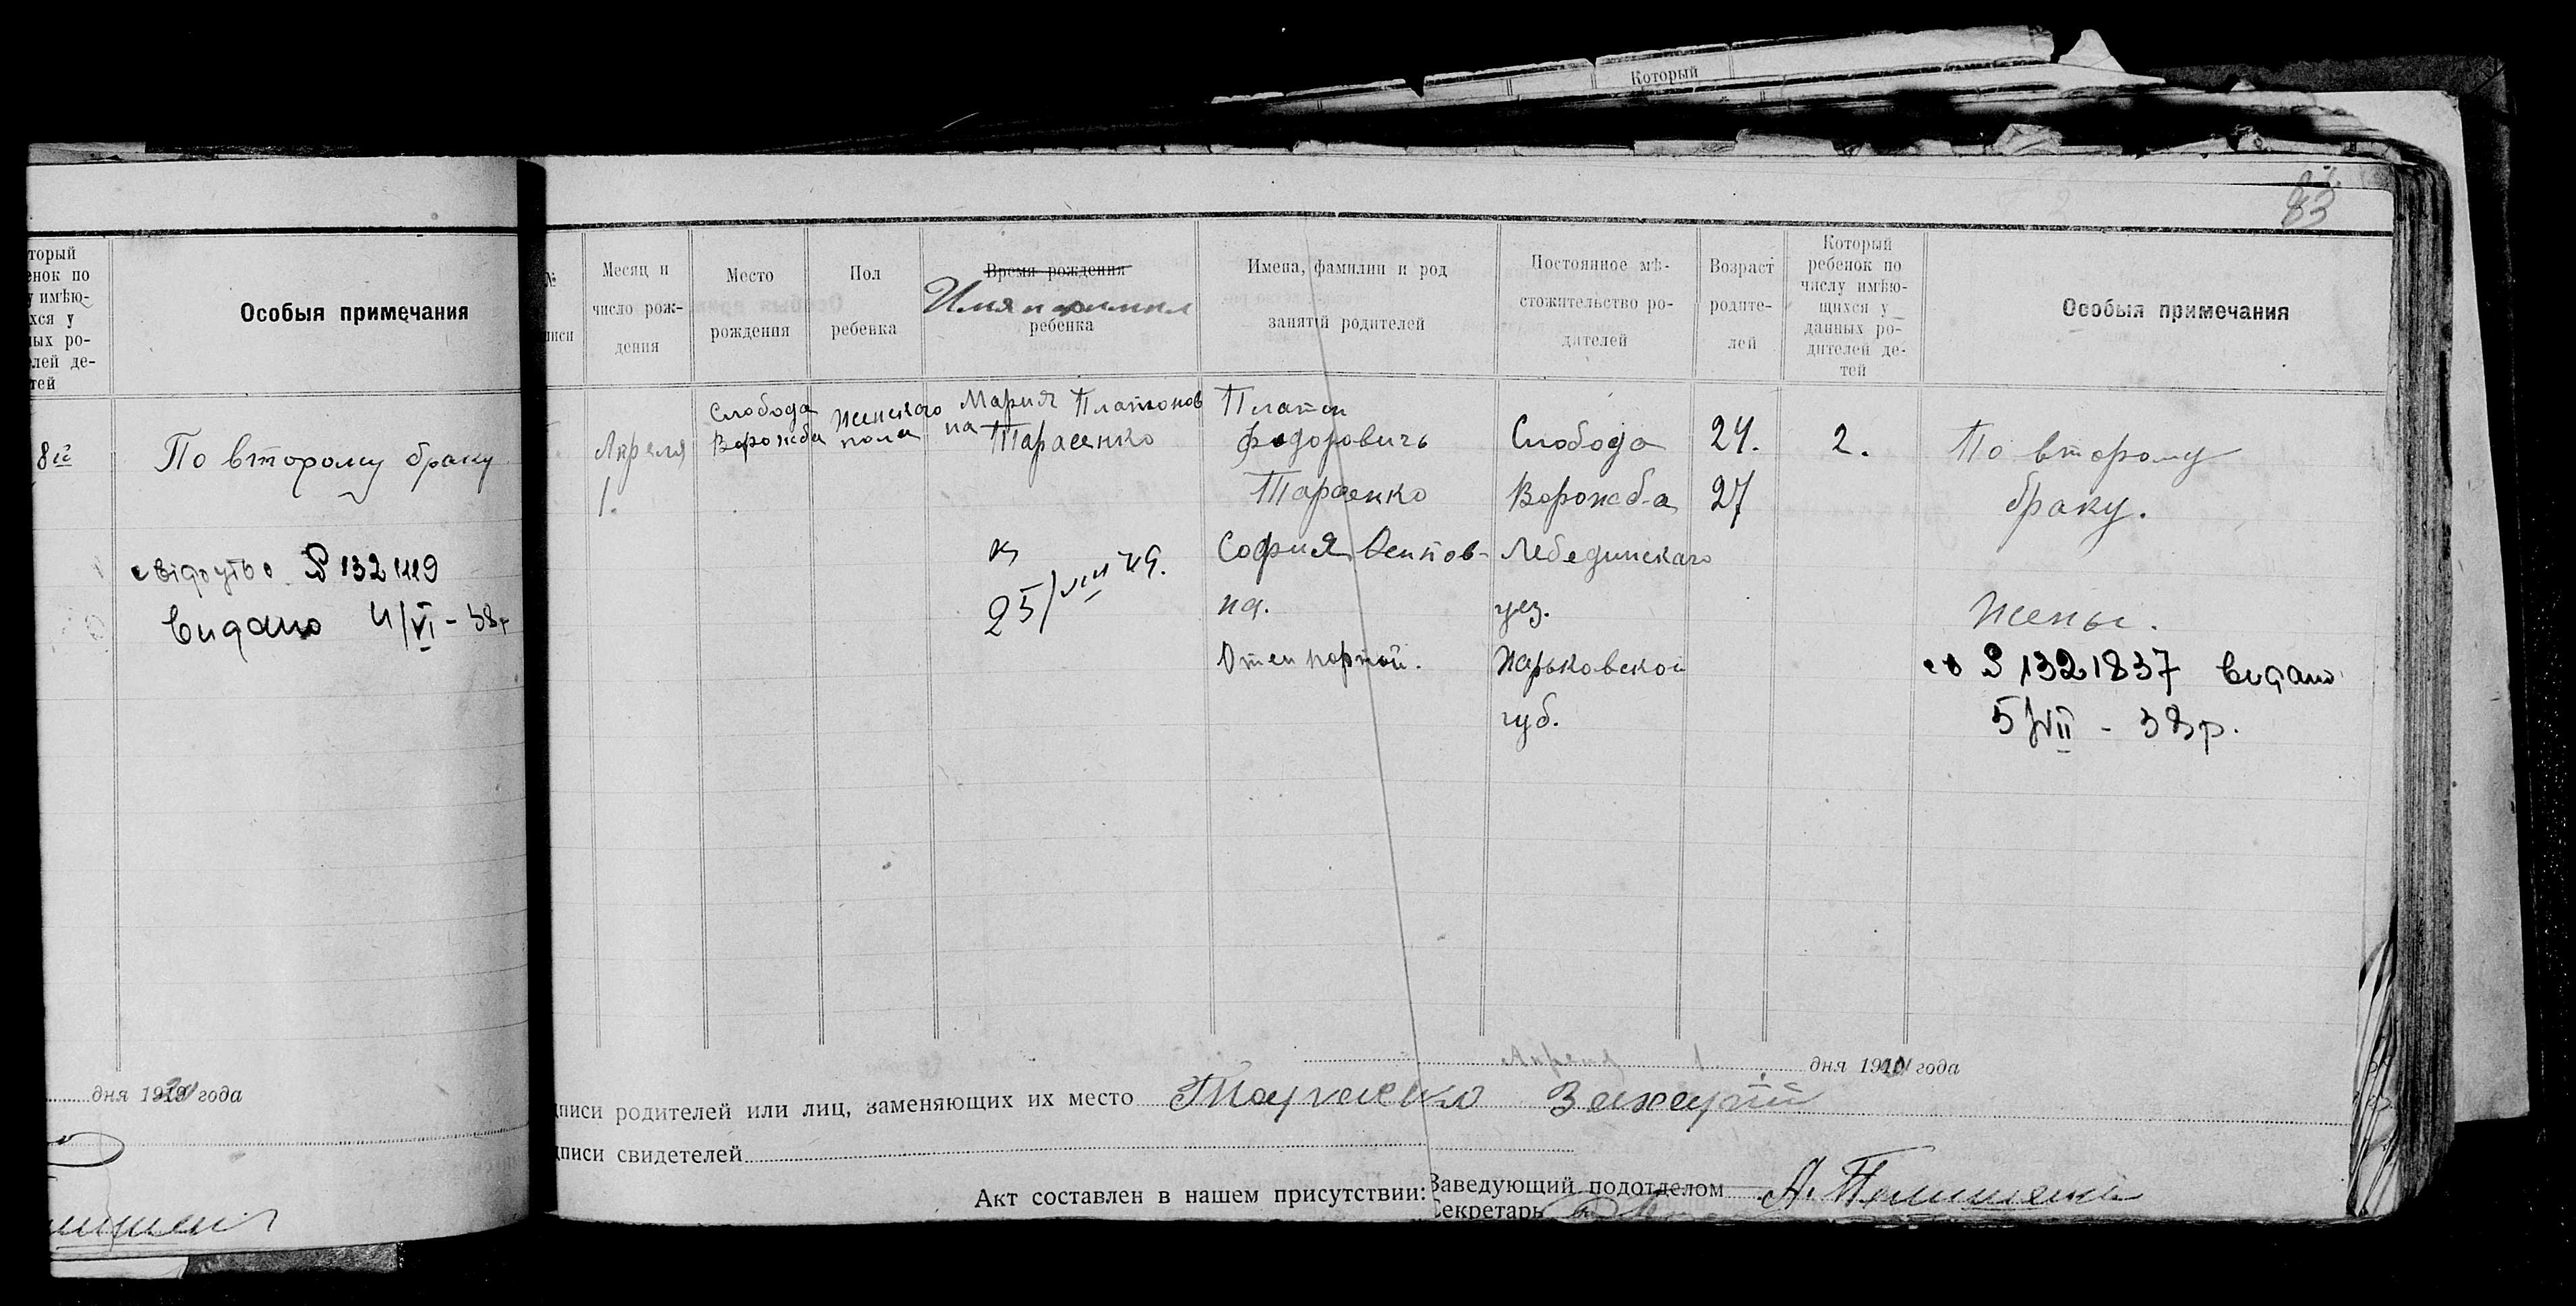 Который
83
торый
енок по
у имѣю-
хся у
ых ро-
лей де-
тей
Особыя примечания
8й
По второму браку
свідоцтво
видано
дня 1920 года
№
иси
Месяц и
число рож-
дения
Место
рождения
Пол
ребенка
Время рождения
Имя и фамилия
ребенка
Имена, фамилии и род
занятий родителей
Постоянное мѣ-
стожительство ро-
дителей
Возраст
родите-
лей
Который
ребенок по
числу имѣю-
щихся у
данных ро-
дителей де-
тей
Особыя примечания
Апреля
1.
Слобода
Ворожба
Женскаго
пола
Мария Платонов
на Тарасенко
25/VIII 49.
Платон
Федоровичь
Тарасенко
София Осипов-
на.
Отец портной.
Слобода
Ворожба
Лебединскаго
уез.
Харьковской
губ.
24.
27
2.
По второму
браку.
Жены.
1321837 видано
5/VII - 38р.
дня 1920 года
дписи родителей или лиц, заменяющих их место Тарасенко
дписи свидетелей
Акт составлен в нашем присутствии:
Заведующий подотделом А.
Секретарь